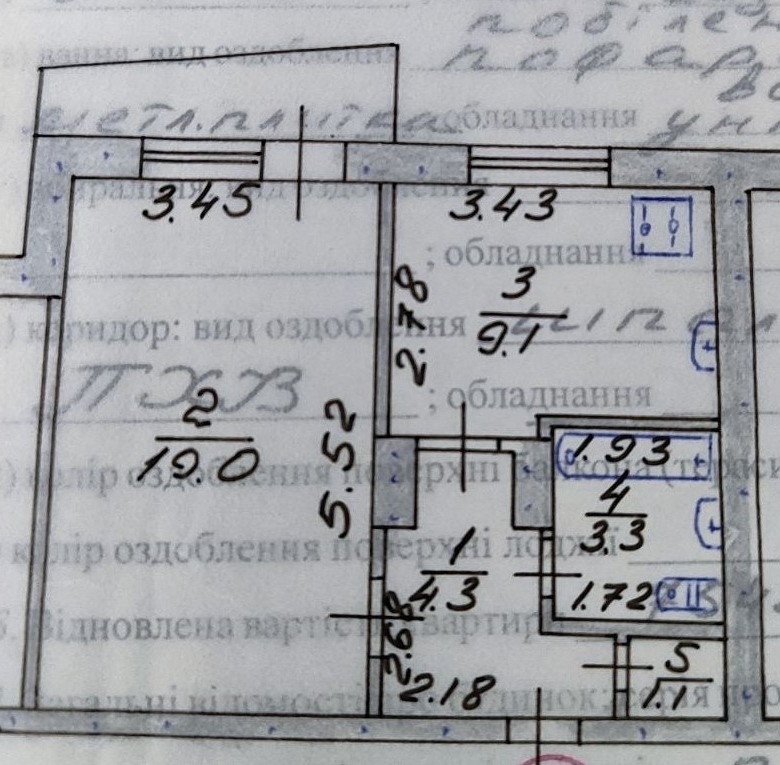 вання: вид оздоблення
метл.плитка обладнання
3.45 3.43
; обладнання
3
9.1
2.78
коридор: вид оздоблення
; обладнання
2
19.0
5.52
1.93
колір оздоблення поверхні балкона
4
3.3
1
4.3
колір оздоблення поверхні лоджії
1.72
Відновлена вартість квартири
2.68
5
1.1
2.18